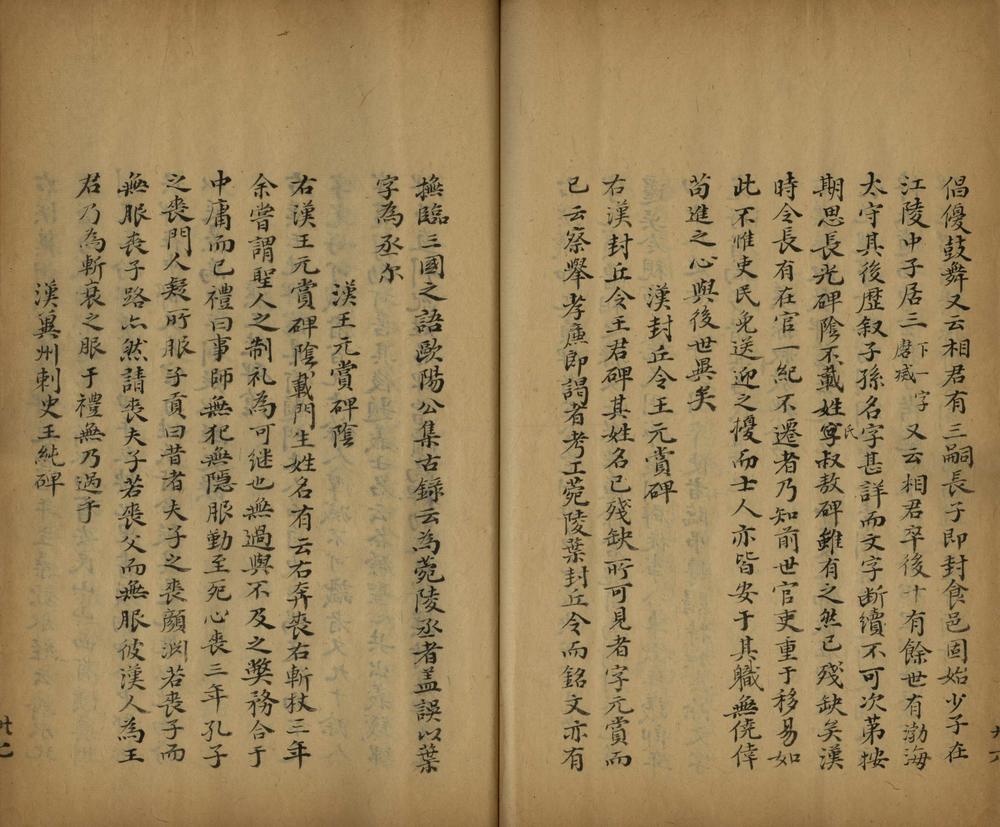 倡優鼓舞又云相君有三嗣長子即封食邑固始少子在
江陵中子居三下一字磨滅又云相君卒後十有餘世有渤海
太守其後歷叙子孫名字甚詳而文字断續不可次第按
期思長光碑陰不載姓氏寧叔敖碑雖有之然已殘缺矣漢
時令長有在官一紀不遷者乃知前世官吏重于移易如
此不惟吏民免送迎之擾而士人亦皆安于其職無僥倖
苟進之心與後世異矣
漢封丘令王元賞碑
右漢封丘令王君碑其姓名已殘缺所可見者字元賞而
已云察舉孝廉即謁者考工菀陵葉封丘令而銘文亦有
撫臨三國之語歐陽公集古録云為菀陵丞者盖誤以葉
字為丞尔
漢王元賞碑陰
右漢王元賞碑陰載門生姓名有云右奔喪右斬杖三年
余嘗謂聖人之制礼為可継也無過與不及之獘務合于
中庸而已禮曰事師無犯無隱服勤至死心喪三年孔子
之喪門人疑所服子貢曰昔者夫子之喪顔渊若喪子而
無服喪子路亦然請喪夫子若喪父而無服彼漢人為王
君乃為斬衰之服于禮無乃過乎
漢兾州刺史王純碑